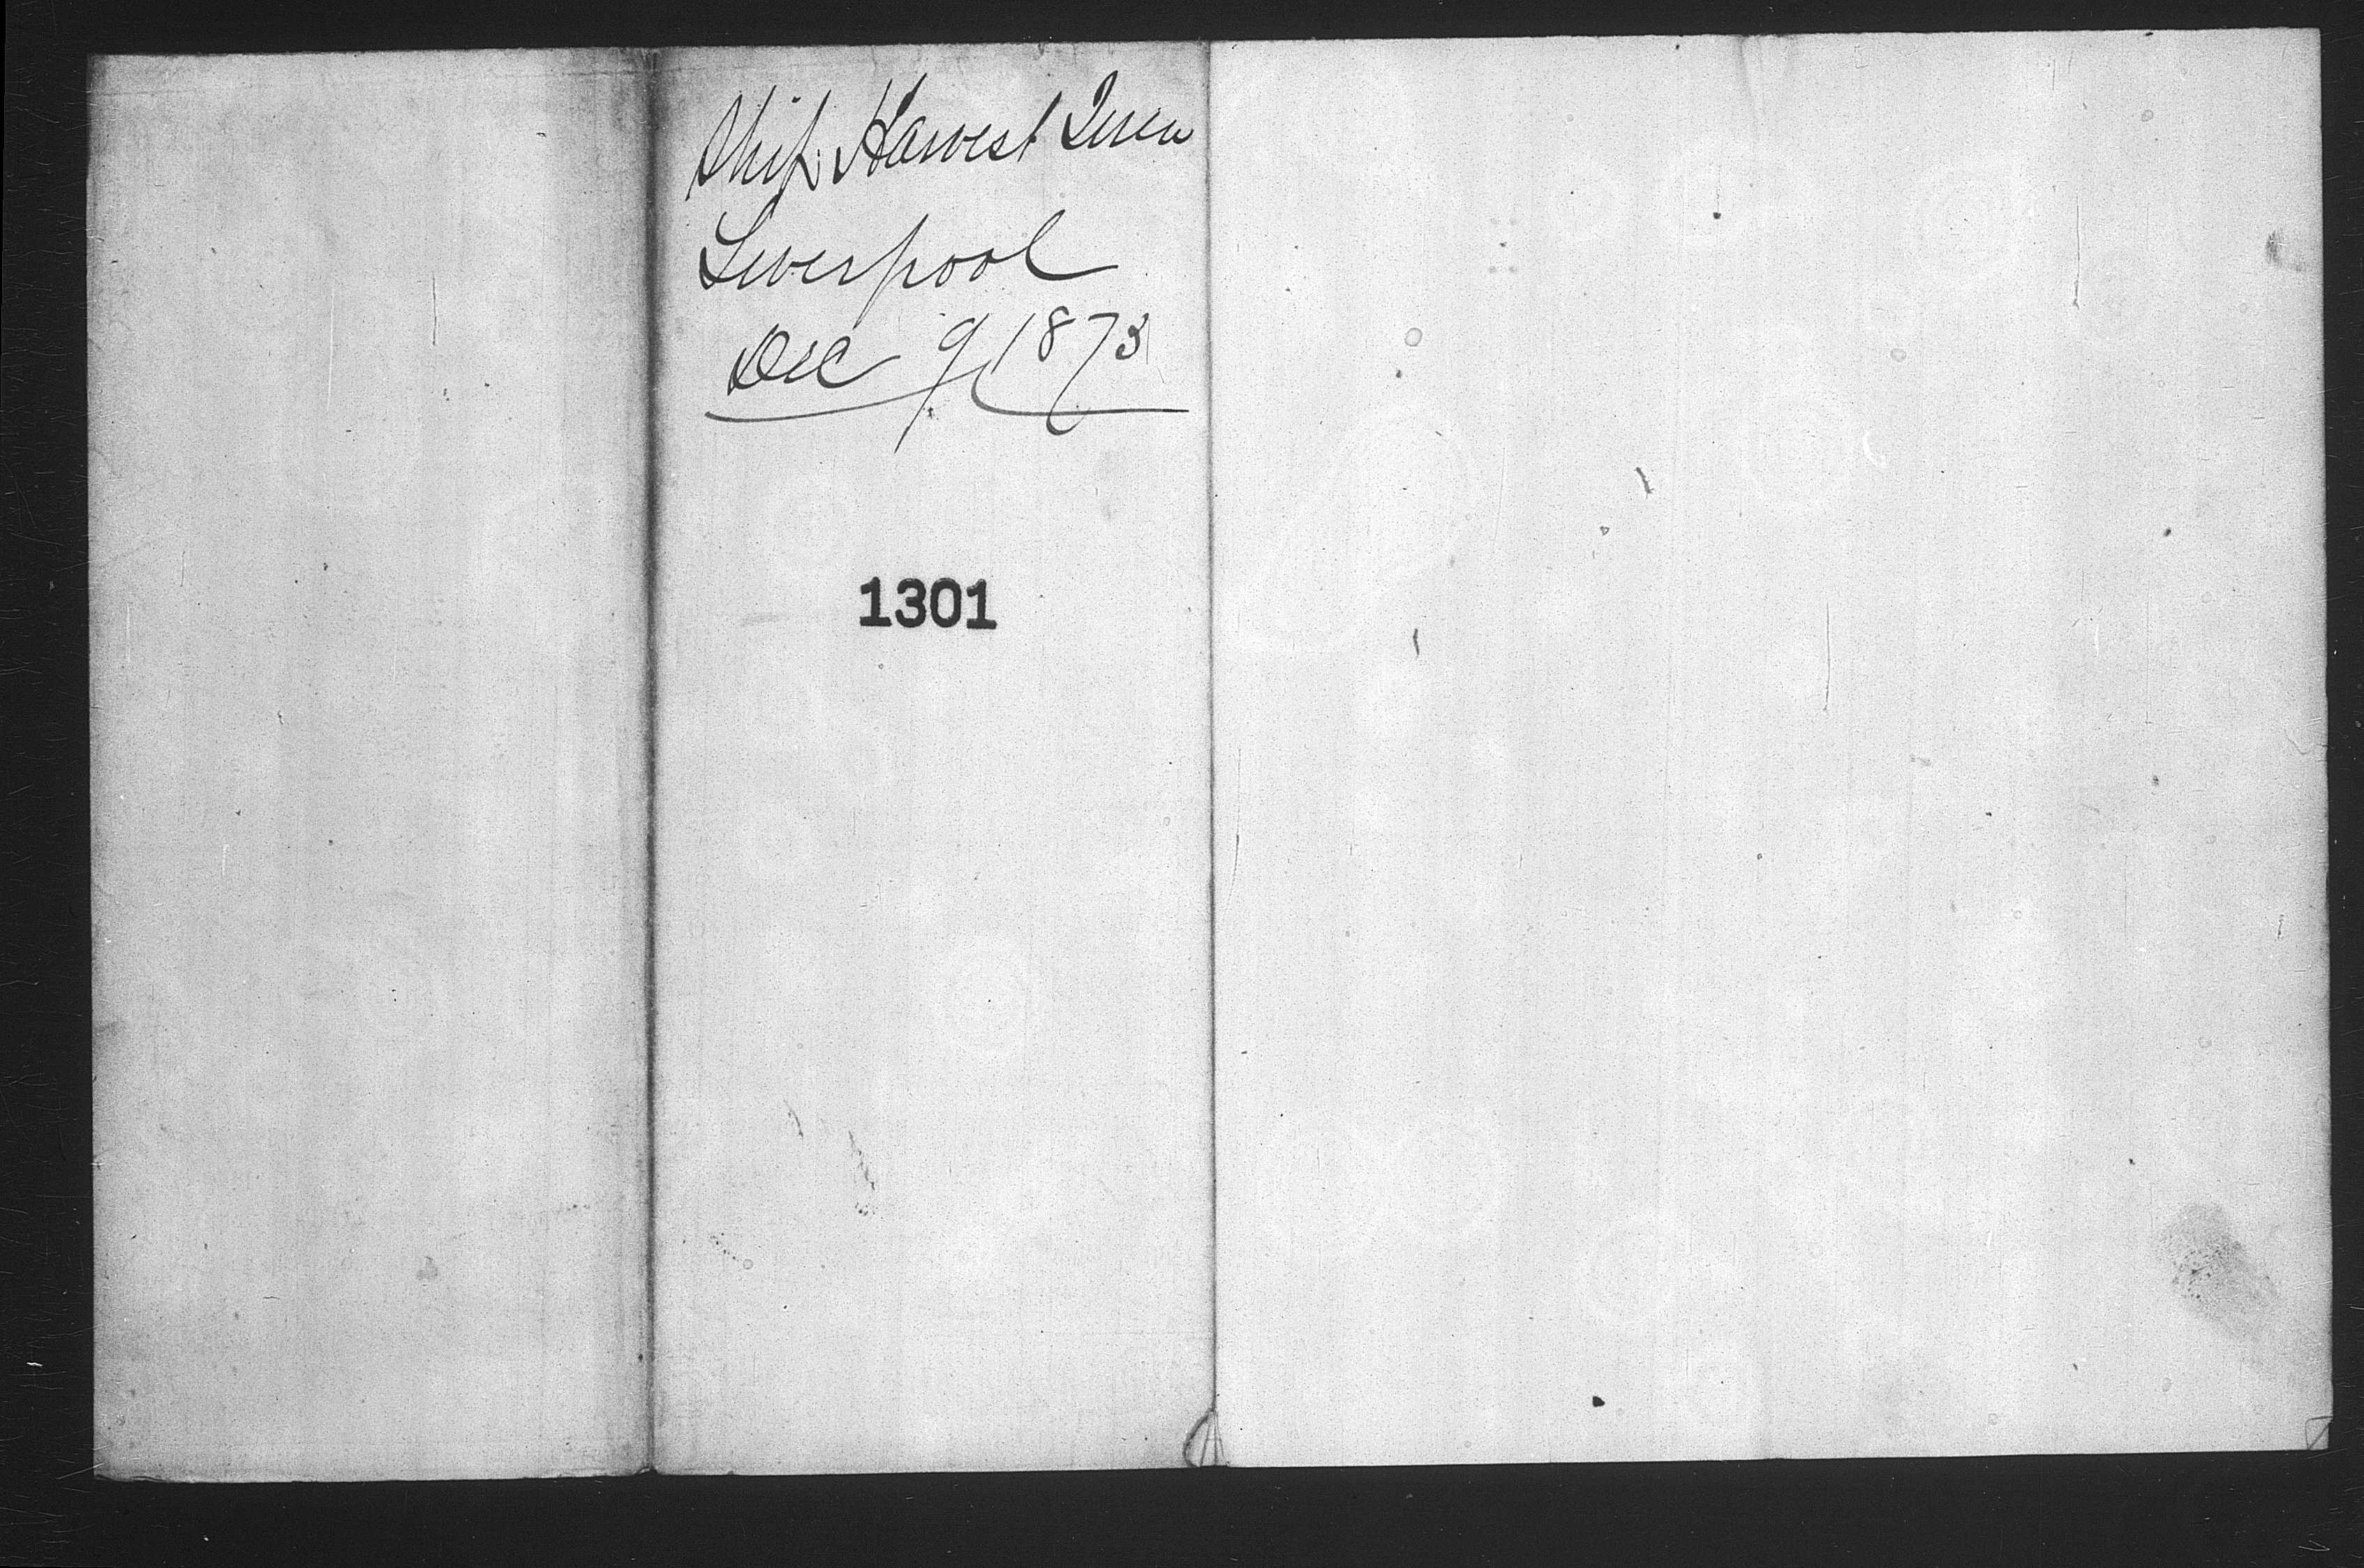 Ship Harvest Queen
Liverpool
Dec 9 1873
1301